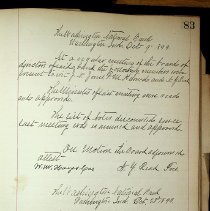 83
The Washington National Bank
Washington Ind. Oct 9" 1899.
At a regular meeting of the board of
directors of said bank the following members were
present
The Minutes of last meeting were read
and approved.
The list of notes discounted since
last meeting was examined and approved.
On Motion the Board adjourned
attest
Pres
The Washington National Bank
Washington Ind. Oct